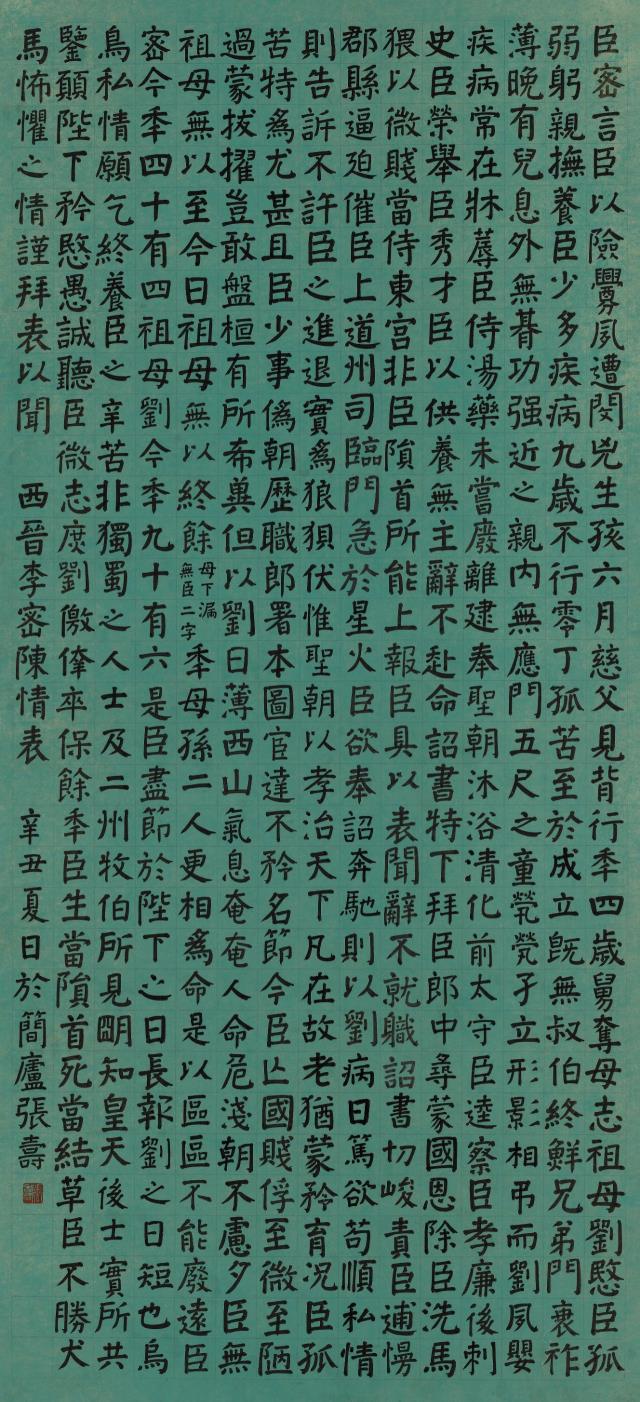 臣密言臣以險釁夙遭閔兇生孩六月慈父見背行年四歲舅奪母志祖母劉愍臣孤
弱躬親撫養臣少多疾病九歲不行零丁孤苦至於成立既無叔伯終鮮兄弟門衰祚
薄晚有兒息外無朞功强近之親內無應門五尺之童煢煢孑立形影相弔而劉夙嬰
疾病常在牀蓐臣侍湯藥未嘗廢離逮奉聖朝沐浴清化前太守臣逵察臣孝廉後刺
史臣榮舉臣秀才臣以供養無主辭不赴命詔書特下拜臣郎中尋蒙國恩除臣洗馬
猥以微賤當侍東宮非臣隕首所能上報臣具以表聞辭不就職詔書切峻責臣逋慢
郡縣逼迫催臣上道州司臨門急於星火臣欲奉詔奔馳則以劉病日篤欲苟順私情
則告訴不許臣之進退實為狼狽伏惟聖朝以孝治天下凡在故老猶蒙矜育況臣孤
苦特為尤甚且臣少事偽朝歷職郎署本圖宦達不矜名節今臣亡國賤俘至微至陋
過蒙拔擢豈敢盤桓有所希冀但以劉日薄西山氣息奄奄人命危淺朝不慮夕臣無
祖母無以至今日祖母無以終餘母下漏無臣二字年母孫二人更相為命是以區區不能廢遠臣
密今年四十有四祖母劉今年九十有六是臣盡節於陛下之日長報劉之日短也烏
鳥私情願乞終養臣之辛苦非獨蜀之人士及二州牧伯所見明知皇天後土實所共
鑒願陛下矜愍愚誠聽臣微志庶劉僥倖卒保餘年臣生當隕首死當結草臣不勝犬
馬怖懼之情謹拜表以聞 西晉李密陳情表 辛丑夏日於簡廬張壽